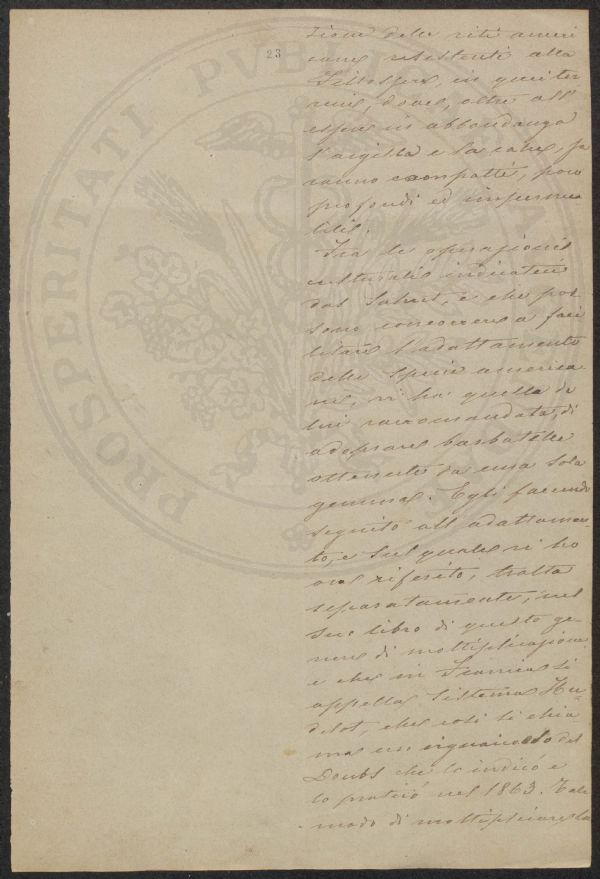 23
PROSPERITATI PVBLICAE
zione delle viti ameri
cane resistenti alla
Fillossera, in quei ter
reni, dove, oltre all'
essere in abbondanza
l'argilla e la calce, sa
ranno compatti, poco
profondi ed impermea
bili.
Fra le operazioni
culturali indicate
dal Sahut, e che pos
sono concorrere a faci
litare l'adattamento
delle Specie america
ne, vi ha quella da
lui raccomandata, di
adoprare barbatelle
ottenute da una sola
gemma. Egli facendo
seguito all'adattamen
to, e sul quale vi ho
ora riferito, tratta
separatamente, nel
suo libro di questo ge-
nere di moltiplicazione
e che in Francia si
appella Sistema Hu-
delot, che così si chia
ma un vignaiuolo del
Doubs che lo indicò e
lo praticò nel 1863. Tale
modo di moltiplicare la